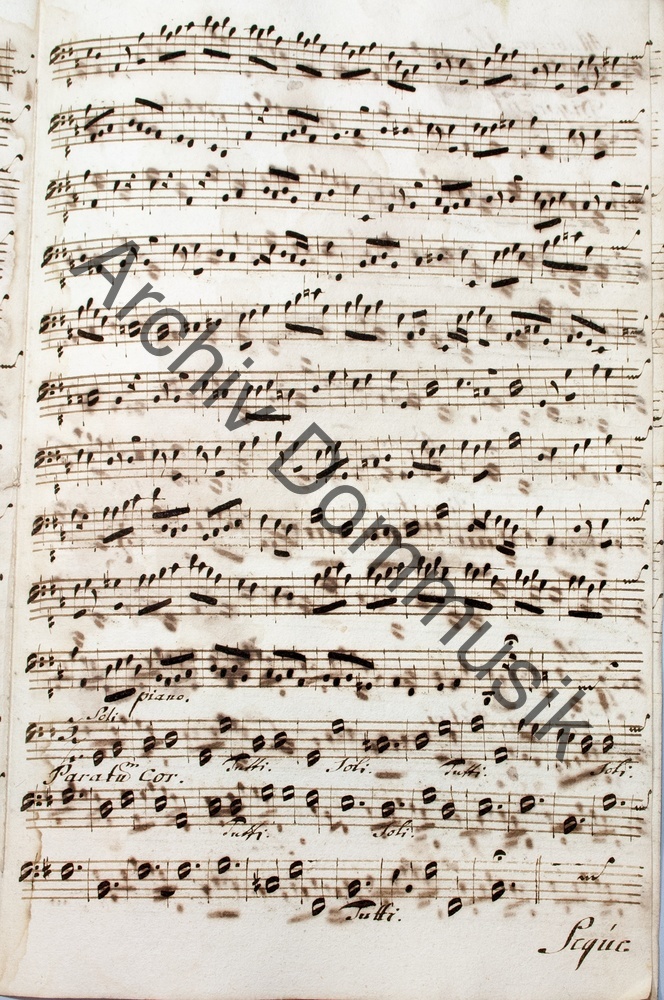 piano.
Soli
Tutti. Soli. Tutti. Soli.
Paratũ Cor.
Tutti. Soli.
Tutti.
Seque
Archiv Dommusik